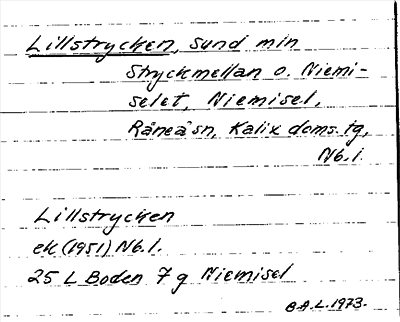 Lillstrycken, sund min
Stryckmellan o. Niemi-
selet, Niemisel,
Råneå sn, Kalix doms. tg,
Nb. l.
Lillstrycken
ek (1951) Nb. l.
25 L Boden 7 g Niemisel
B.A.L. 1973.